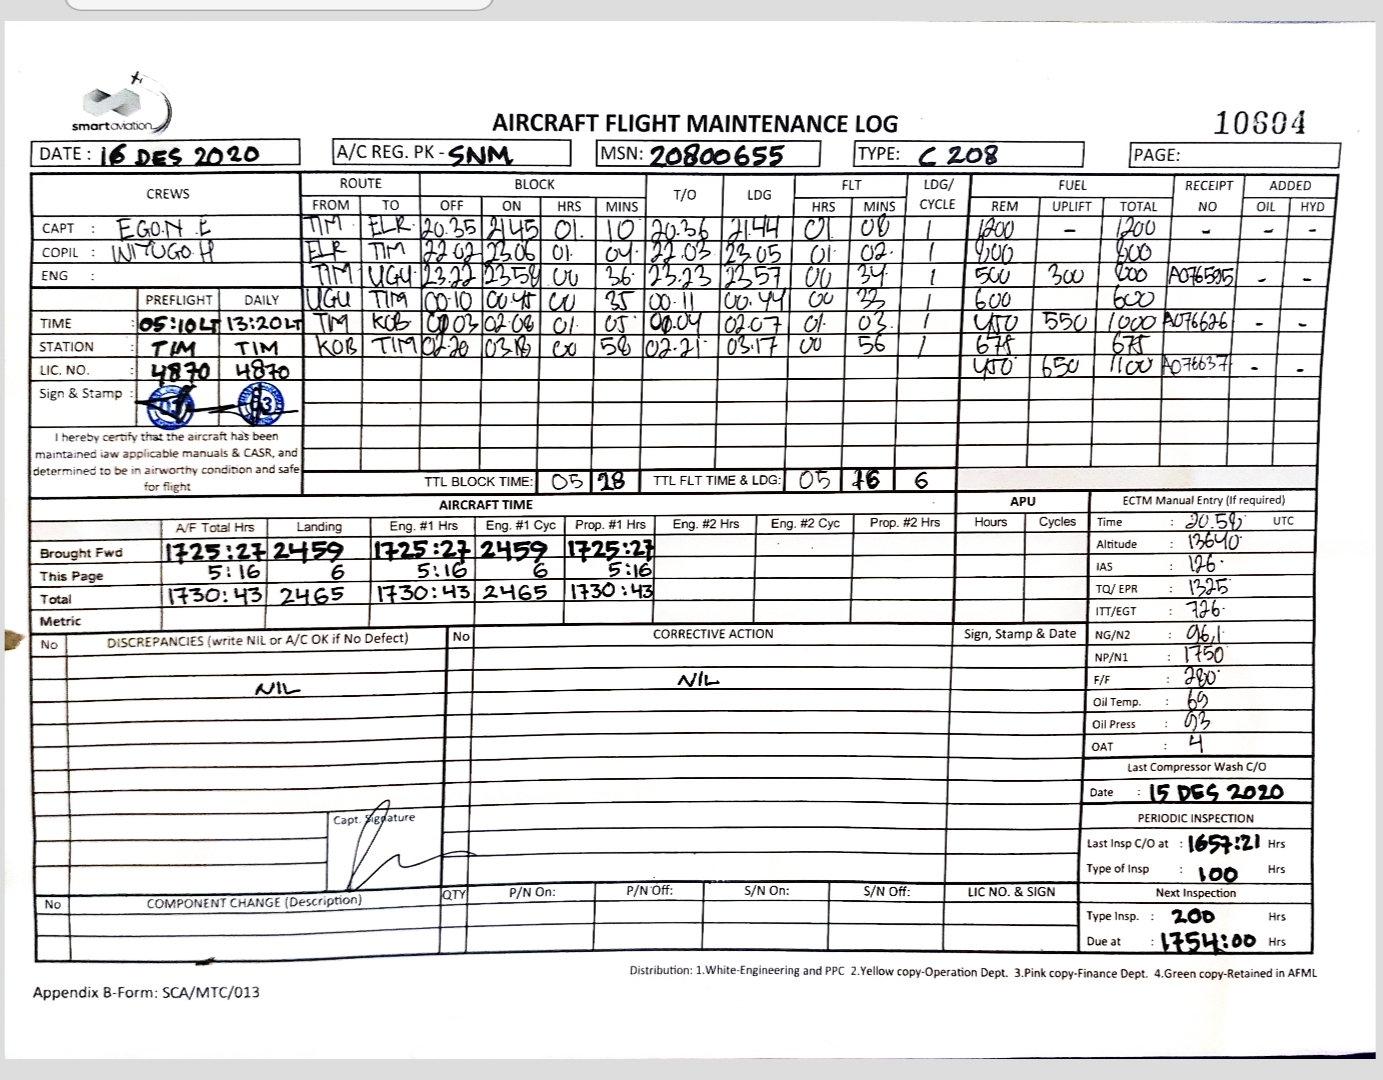 smart aviation
AIRCRAFT FLIGHT MAINTENANCE LOG
10604
DATE : 16 DES 2020 A/C REG. PK - SNM MSN: 20800655 TYPE: C 208 PAGE:
CREWS ROUTE BLOCK T/O LDG FLT LDG/ CYCLE FUEL RECEIPT NO ADDED
FROM TO OFF ON HRS MINS HRS MINS REM UPLIFT TOTAL OIL HYD
CAPT : EGON .E TIM ELR 20.35 2145 01. 10 20.36 21.44 01. 08 1 1200 - 1200 - - -
COPIL : H ELR TIM 22.02 23.06 01. 04 22.03 23.05 01 02. 1 800 800
ENG : TIM UGU 23.22 23.58 00 36 23.23 23.57 00 34 1 500 300 800 A076595 - -
PREFLIGHT DAILY UGU TIM 00.10 00.45 00 35 00.11 00.44 00 33 1 600 600
TIME : 05:10LT 13:20LT TIM KOB 02.08 01. 05 02.07 01. 03. 1 450 550 1000 A076626 - -
STATION : TIM TIM KOB TIM 02.20 03.18 00 58 02.21 03.17 00 56 1 675 675
LIC. NO. : 4870 4870 450 650 1100 A076637 - -
Sign & Stamp :
I hereby certify that the aircraft has been
maintained iaw applicable manuals & CASR, and
determined to be in airworthy condition and safe
for flight
TTL BLOCK TIME: 05 28 TTL FLT TIME & LDG: 05 16 6
AIRCRAFT TIME APU ECTM Manual Entry (If required)
A/F Total Hrs Landing Eng. #1 Hrs Eng. #1 Cyc Prop. #1 Hrs Eng. #2 Hrs Eng. #2 Cyc Prop. #2 Hrs Hours Cycles
Brought Fwd 1725:27 2459 1725:27 2459 1725:27
This Page 5:16 6 5:16 6 5:16
Total 1730:43 2465 1730:43 2465 1730:43
Metric
Time : 20.58 UTC
Altitude : 13640
IAS : 126
TQ/ EPR : 1325
ITT/EGT : 726
NG/N2 : 96,1
NP/N1 : 1750
F/F : 280
Oil Temp. : 69
Oil Press : 93
OAT : 4
No DISCREPANCIES (write NIL or A/C OK if No Defect) No CORRECTIVE ACTION Sign, Stamp & Date
NIL NIL
Last Compressor Wash C/O
Date : 15 DES 2020
Capt. Signature
PERIODIC INSPECTION
Last Insp C/O at : 1657:21 Hrs
Type of Insp : 100 Hrs
Next Inspection
Type Insp. : 200 Hrs
Due at : 1754:00 Hrs
No COMPONENT CHANGE (Description) QTY P/N On: P/N Off: S/N On: S/N Off: LIC NO. & SIGN
Distribution: 1.White-Engineering and PPC 2.Yellow copy-Operation Dept. 3.Pink copy-Finance Dept. 4.Green copy-Retained in AFML
Appendix B-Form: SCA/MTC/013